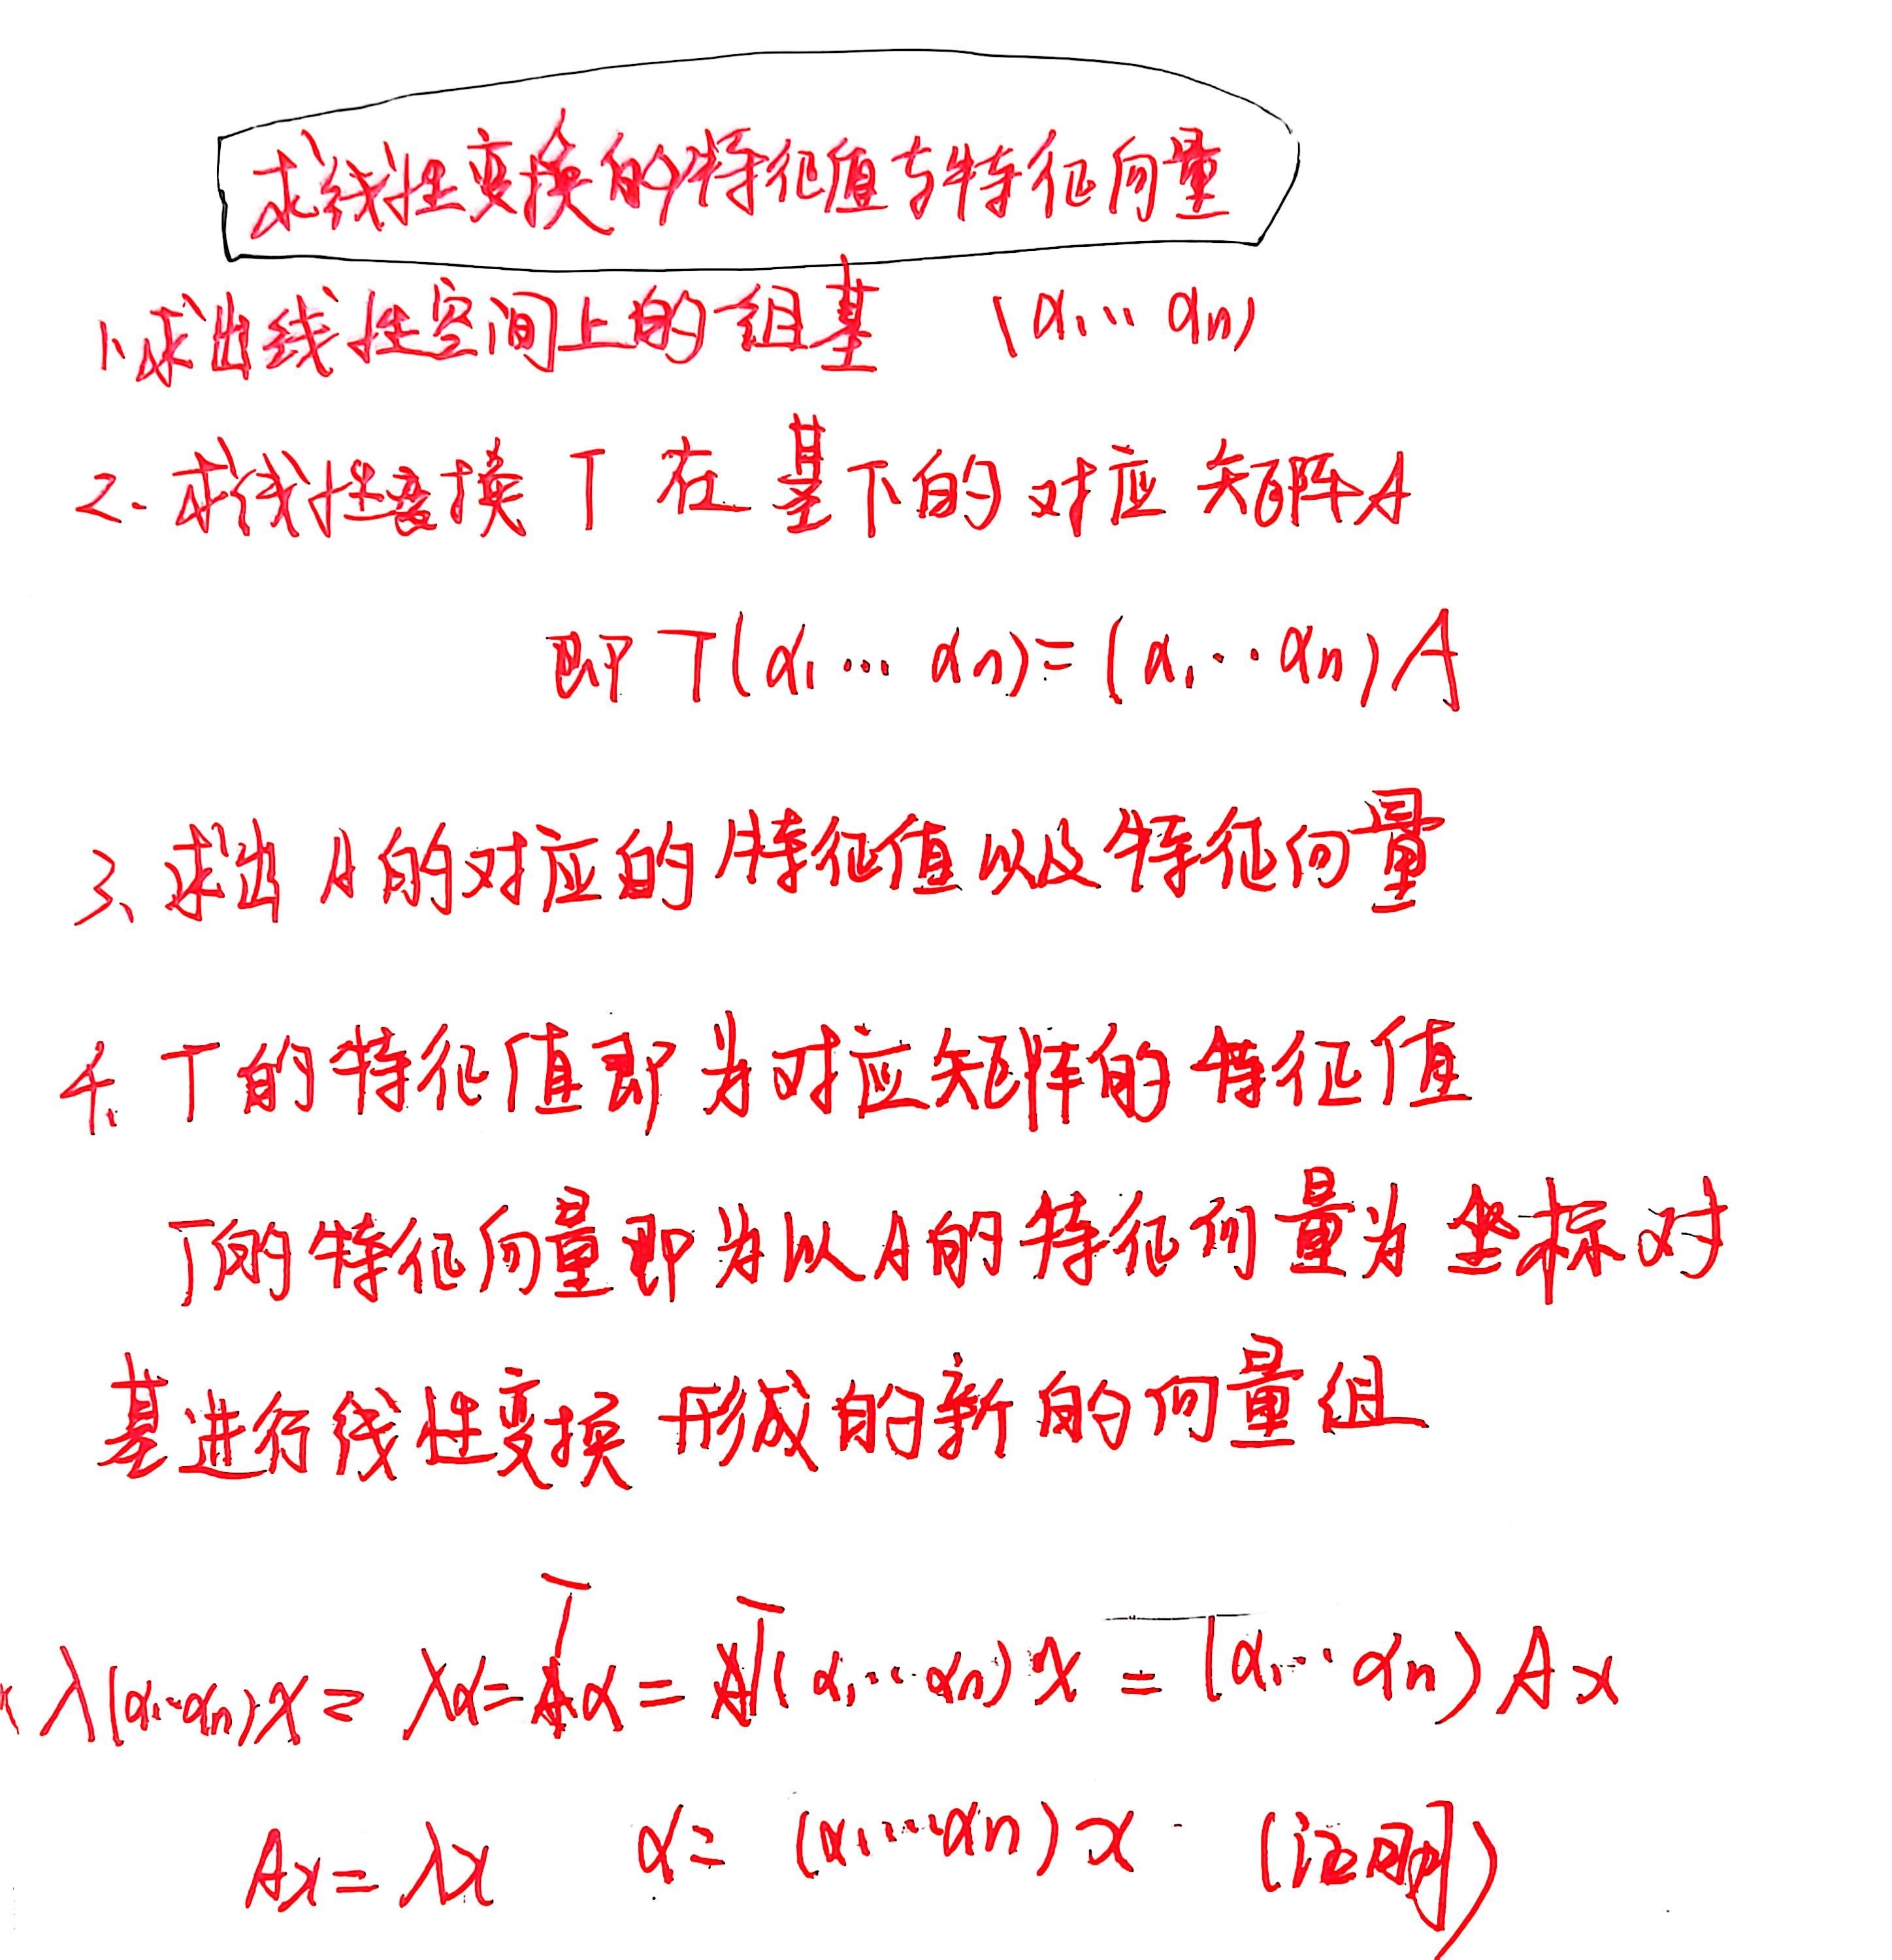 求线性变换的特征值与特征向量
1.求出线性空间上的一组基 (α1… αn)
2. 求线性变换 T 在基下的对应矩阵A
即 T(α1… αn)=(α1…αn)A
3、求出A的对应的特征值以及特征向量
4. T的特征值即为对应矩阵的特征值
T的特征向量即为以A的特征向量为坐标对
基进行线性变换形成的新的向量组
λ(α1…αn)x = λα=Tα=T(α1…αn)x = (α1…αn)Ax
Ax=λx α= (α1…αn)x (证明)